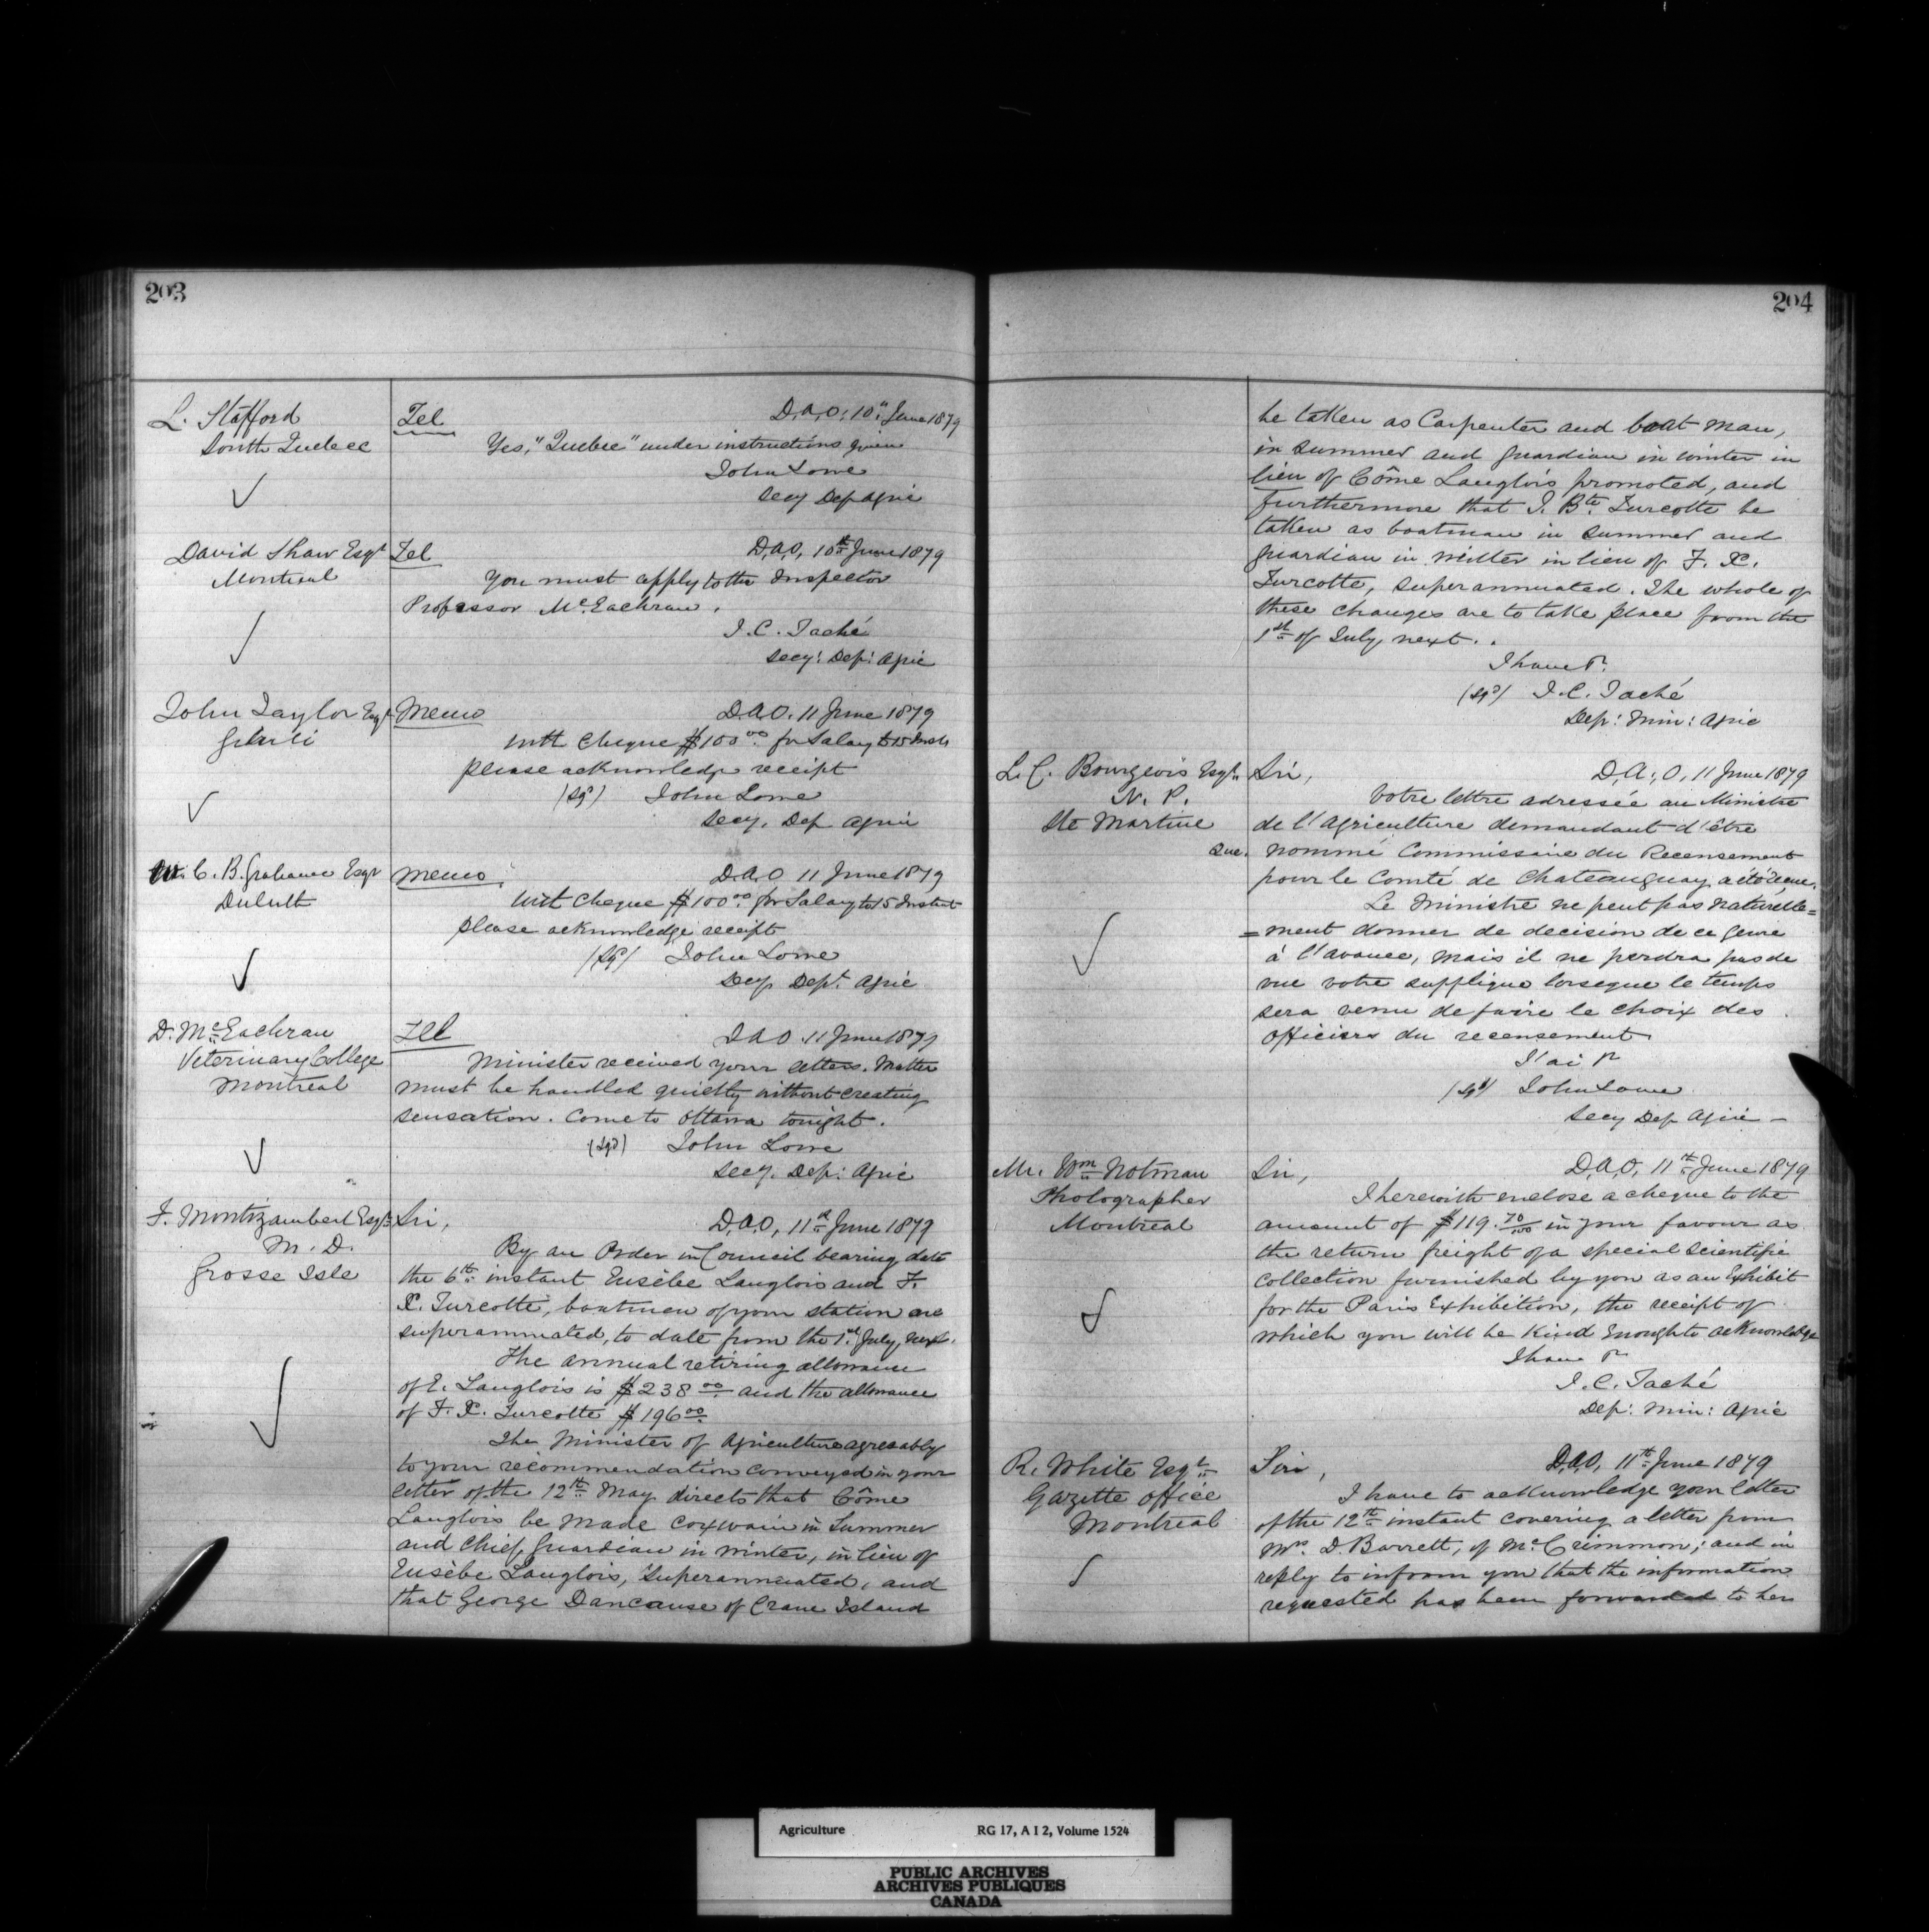 203
L. Stafford
South Quebec
Tel
D.A.O. 10" June 1879
Yes, "Quebec" under instructions given
John Lowe
Secy Dep Agric
David Shaw Esqr
Montreal
Tel
D.A.O. 10th June 1879
You must apply to the Inspector
Professor McEachran.
J.C. Taché
Secy: Dep: Agric
John Taylor Esqr
Memo
D.A.O. 11 June 1879
With Cheque $100 00 for Salary to 15 Inst
please acknowledge receipt
(Sgd) John Lowe
Secy. Dep Agric
W. C. B. Grahame Esqr
Duluth
Memo.
D.A.O 11 June 1879
With Cheque $100 00 for Salary to 15 Instant
please acknowledge receipt
(Sgd) John Lowe
Secy Dept. Agric
D. McEachran
Veterinary College
Montreal
Tel
D A O. 11 June 1879
Minister received your letters. Matter
must be handled quietly without creating
sensation. Come to Ottawa tonight.
(Sgd) John Lowe
Secy. Dep: Agric
F. Montizambert Esqr
M. D.
Grosse Isle
Sir,
D.A.O, 11th June 1879
By an Order in Council bearing date
the 6th instant Eusèbe Langlois and F.
X. Turcotte, boatmen of your station are
superannuated, to date from the 1st July, next.
The annual retiring allowance
of E. Langlois is $238 00 and the allowance
of F. X. Turcotte $196 00
The Minister of Agriculture agreeably
to your recommendation conveyed in your
letter of the 12th May directs that Côme
Langlois be made Coxwain in Summer
and Chief Guardian in winter, in lieu of
Eusèbe Langlois, Superannuated, and
that George Dancause of Crane Island
204
be taken as Carpenter and boat man,
in summer and guardian in winter in
lieu of Côme Langlois promoted, and
furthermore that J. Bte. Turcotte be
taken as boatman in summer and
guardian in winter in lieu of F. X.
Turcotte, superannuated. The whole of
these changes are to take place from the
1st of July next.
I have &
(Sgd) J.C. Taché
Dep: Min: Agric
L. C. Bourgeois Esqr.
N. P.
Ste Martine
Que.
Sir,
D.A.O, 11 June 1879
Votre lettre adressée au Ministre
de l'Agriculture demandant d'être
nommé Commissaire du Recensement
pour le Comté de Chateauguay a été reçue.
Le Ministre ne peut pas naturelle=
=ment donner de decision de ce genre
à l'avance, mais il ne perdra pas de
vue votre supplique lorsque le temps
sera venu de faire le choix des
Officiers du recensement
J'ai &
(Sgd) John Lowe
Secy Dep Agric -
Mr. Wm Notman
Photographer
Montreal
Sir,
D.A.O, 11th June 1879
I herewith enclose a cheque to the
amount of $119. 70/100 in your favour as
the return freight of a special scientific
collection furnished by you as an Exhibit
for the Paris Exhibition, the receipt of
which you will be kind enough to acknowledge
I have &
J. C. Taché
Dep: Min: Agric
R. White Esqr
Gazette Office
Montreal
Sir,
D.A.O, 11th June 1879
I have to acknowledge your letter
of the 12th instant covering a letter from
Mrs. D. Barrett, of McCrimmon; and in
reply to inform you that the information
requested has been forwarded to her
Agriculture RG 17, A I 2, Volume 1524
PUBLIC ARCHIVES
ARCHIVES PUBLIQUES
CANADA